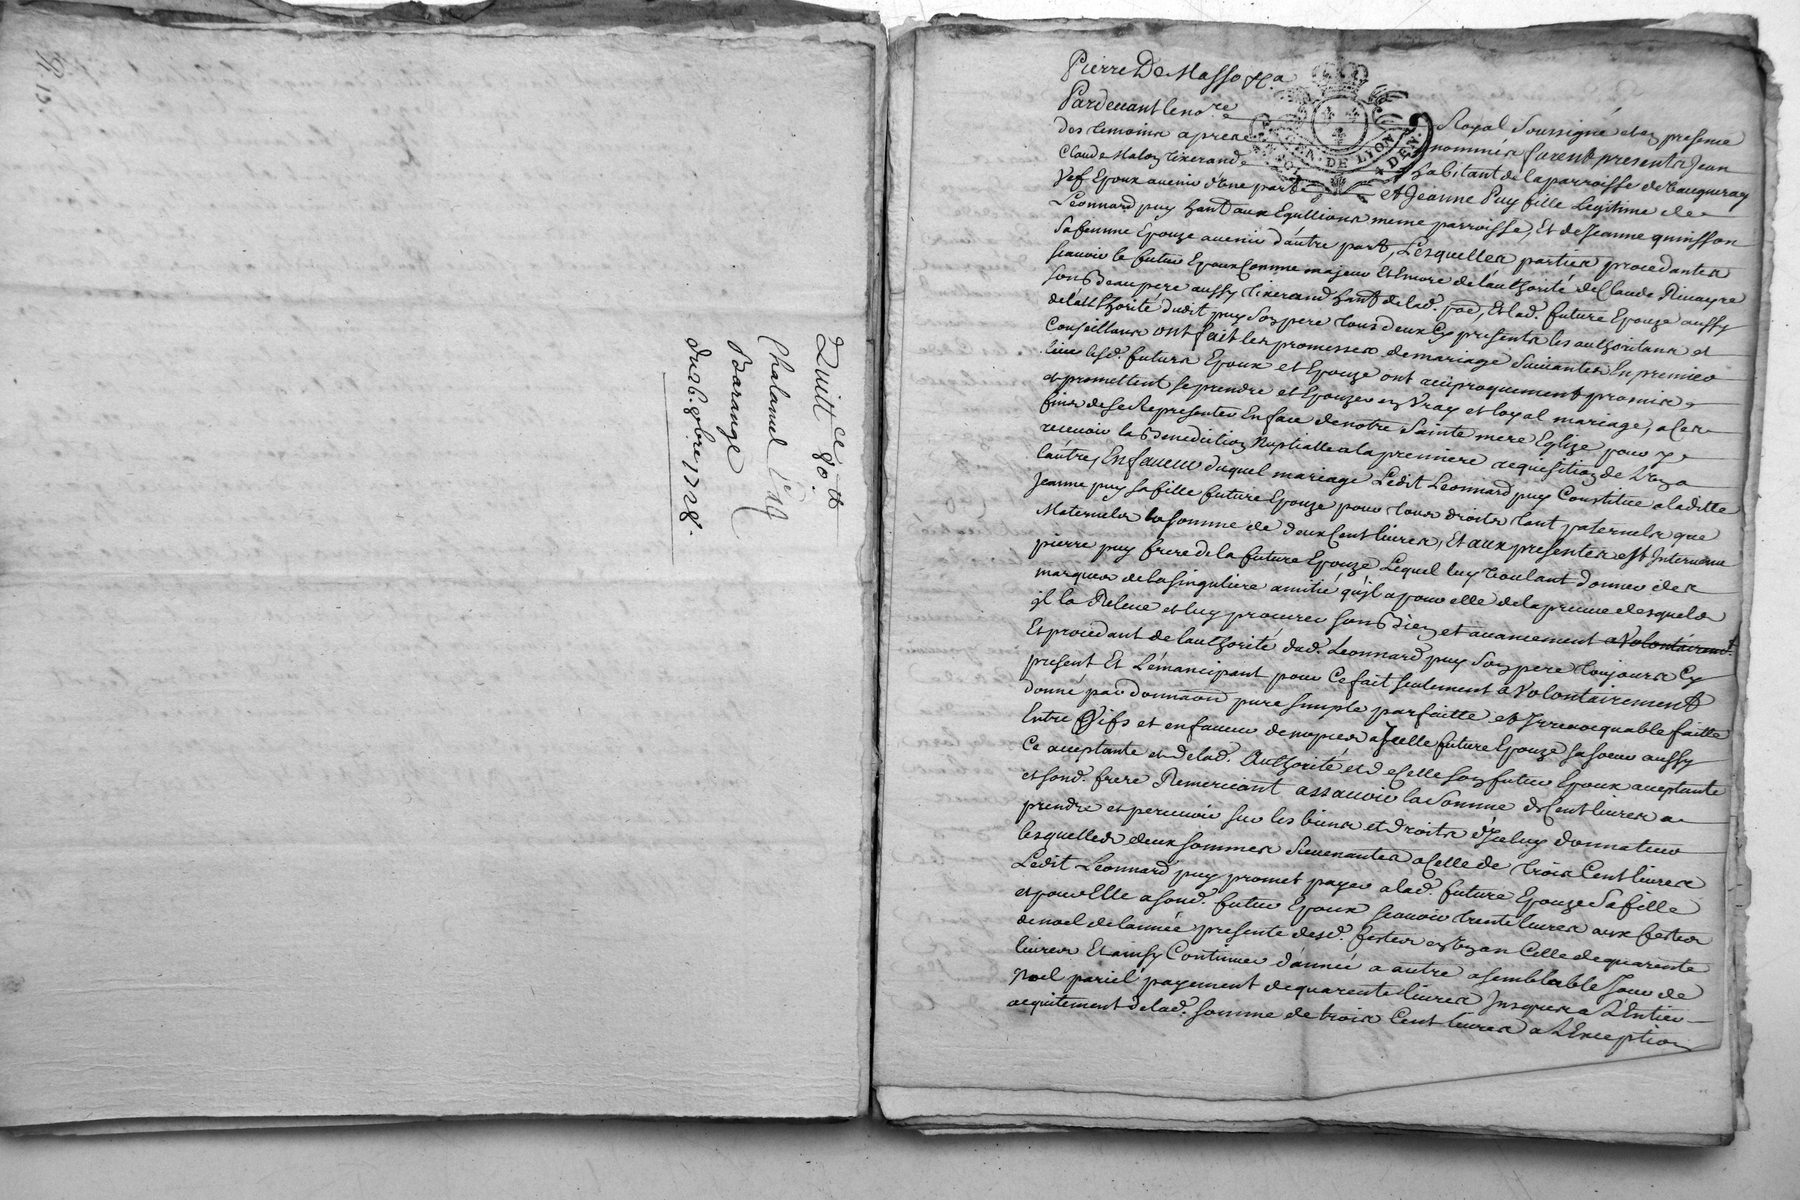 pp. 13.
Quitt.ce 80.tt
Chalamel C.
Barange
du 26. 9bre 1728.
Pierre De Masso &ca.
Pardevant le no.re Royal Soussigné et en presence
des temoins apres nommés furent presents Jean
Claude tixerand habitant de la parroisse de vaugneray
Vef Epoux avenir d'une part et Jeanne Puy fille Legitime de
Leonnard puy hant. aux Egullions meme parroisse, Et de Jeanne quinsson
sa femme Epouze avenir d'autre part, Lesquelles parties procedantes
scavoir le futur Epoux Comme majeur Et Encore de l'authorité de Claude Rivayre
son Beaupere aussy tixerand hant. de lad. par. Et lad. future Epouze aussy
de l'authorité dudit puy son pere tous deux Cy presents les authorisans et
Conseillans ont fait les promesses de mariage Suivantes En premier
lieu lesd. futurs Epoux et Epouze ont reciproquement promis
et promettent se prendre et Epouzer en Vray et loyal mariage, a ces
fins de se Representer En face de notre Sainte mere Eglise pour y
recevoir la Benediction Nuptialle a la premiere requisition de L'un a
l'autre, En faveur duquel mariage Ledit Leonnard puy Constitue a laditte
Jeanne puy sa fille future Epouze pour tous droits tant paternels que
Maternels la somme de deux Cent livres, Et aux presentes est Intervenu
pierre puy frere de la future Epouze Lequel luy voulant donner des
marques de la singuliere amitié qu'il a pour elle de la preuve desquels
il la Releve et luy procurer son Bien et avancement a Volontairemt.
Et procedant de l'authorité dud. Leonnard puy son pere toujours Cy
present Et L'émancipant pour Ce fait seulement a Volontairement
donné par donnaon pure simple parfaitte et Irrevocquable faitte
Entre Vifs et en faveur de nopces a Icelle future Epouze sa soeur aussy
Ce aceptante et de lad. Authorité et de Celle son futur Epoux aceptante
et sond. frere Remerciant assavoir la somme de Cent livres a
prendre et percevoir sur les biens et droits d'Iceluy donnateur
lesquelles deux sommes Revenantes a Celle de trois Cent livres
Ledit Leonnard puy promet payer a lad. future Epouze Sa fille
et pour Elle a sond. futur Epoux scavoir trente livres aux festes
de noel de l'année presente desd. festes en un an Celle de quarente
livres Et ainsy Continuer d'année a autre a semblable Jour de
Noel pareil payement de quarente livres Jusques a L'Entier
acquitement de lad. somme de trois Cent livres a L'Exception